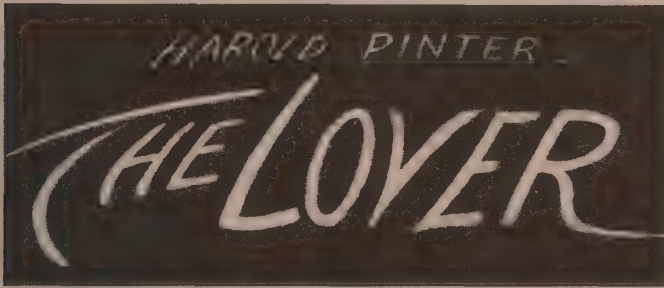 HAROLD PINTER
THE LOVER